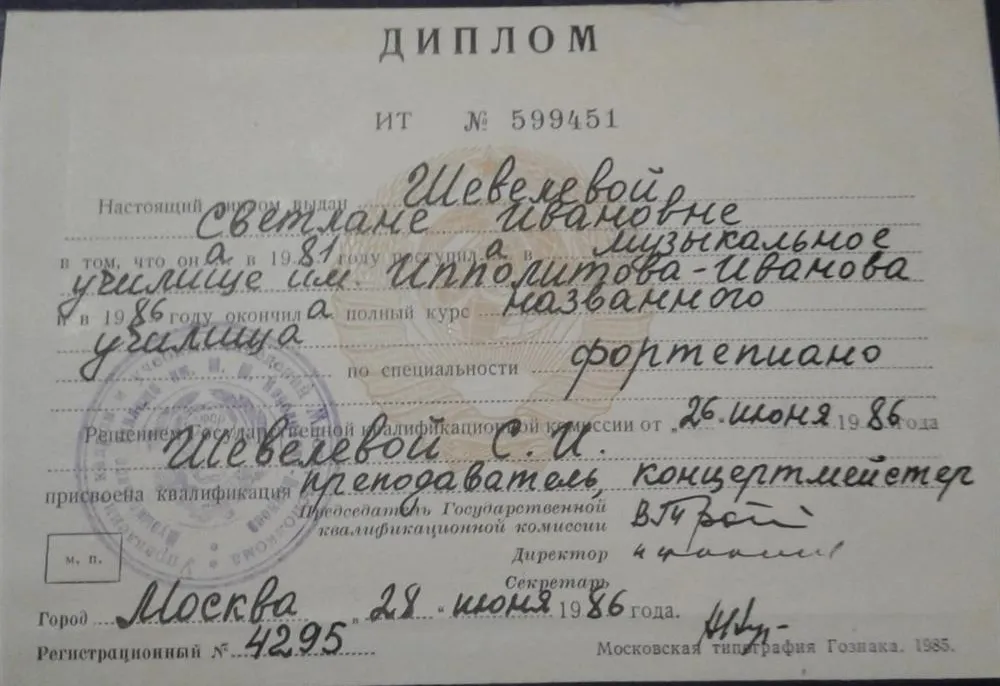 ДИПЛОМ
ИТ № 599451
Настоящий диплом выдан Шевелевой
Светлане Ивановне
в том, что она в 1981 году поступила в музыкальное
училище им. Ипполитова-Иванова
и в 1986 году окончила полный курс названного
училища
по специальности фортепиано
Решением Государственной квалификационной комиссии от „26" июня 1986 года
Шевелевой С. И.
присвоена квалификация преподаватель, концертмейстер
Председатель Государственной
квалификационной комиссии
Директор
Секретарь
м. п.
Город Москва „28" июня 1986 года.
Регистрационный № 4295
Московская типография Гознака. 1985.